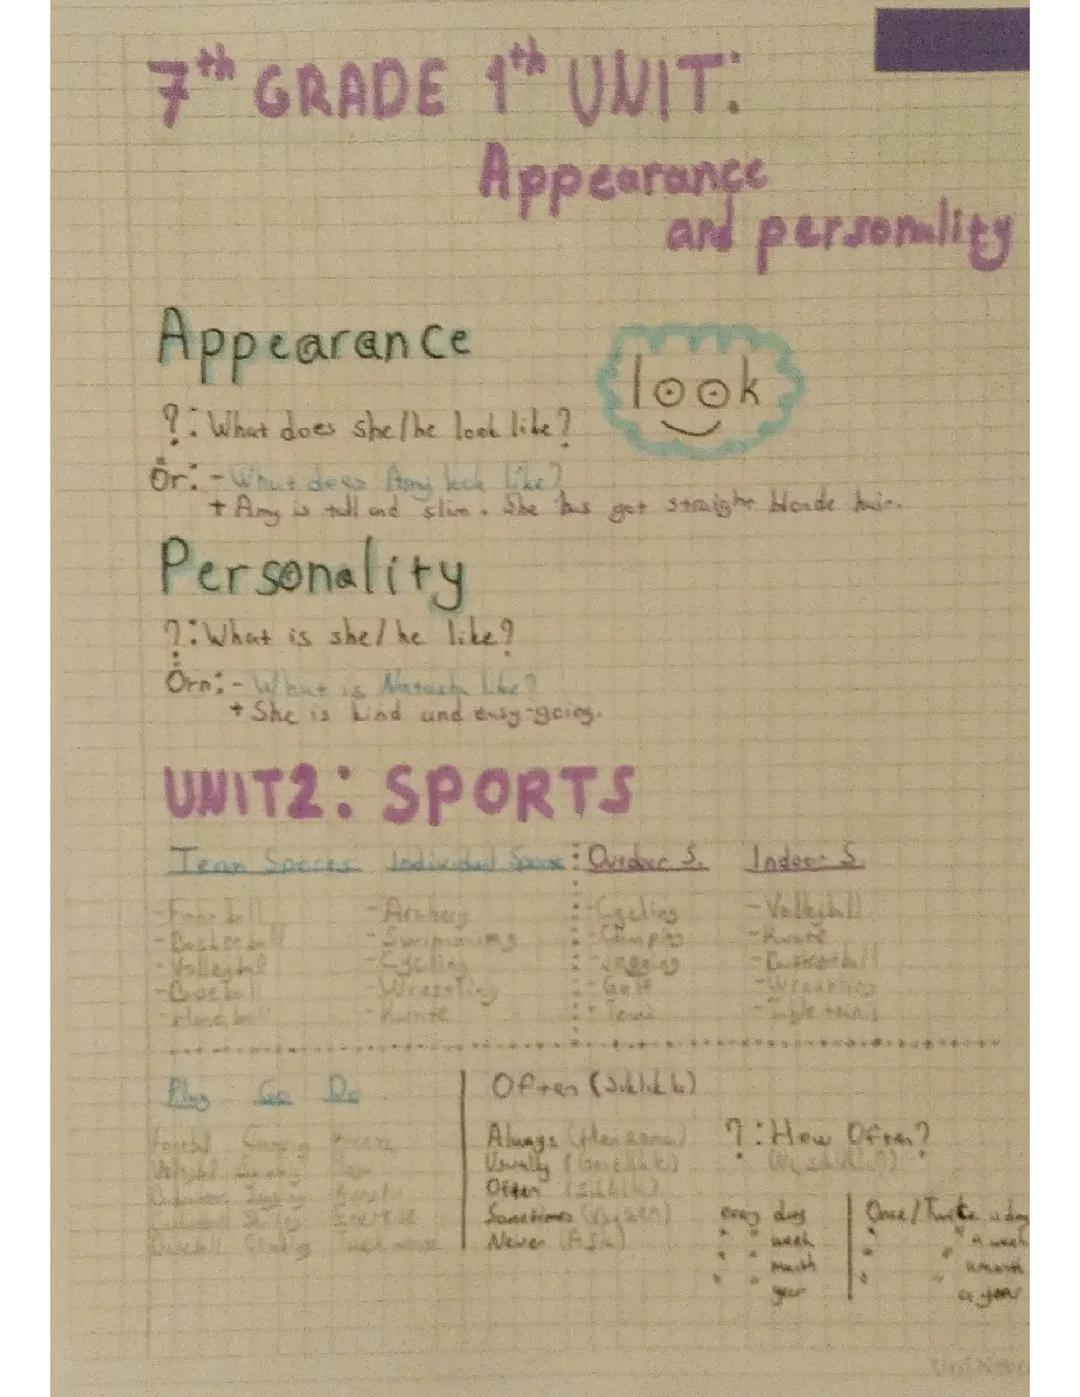 7th GRADE 1th UNIT:
Appearance
and personality
Appearance
look
?: What does she/he look like?
Ör: - What does Amy look like?
+ Amy is tall and slim. She has got straight blonde hair.
Personality
?: What is she/he like?
Örn: - What is Natasha like?
+ She is kind and easy-going.
UNIT2: SPORTS
Team Sports Individual Sports Outdoor S. Indoor S.
- Football - Archery - Cycling - Volleyball
- Basketball - Swimming - Camping - Karate
- Volleyball - Cycling - Jogging - Basketball
- Baseball - Wrestling - Golf - Wrestling
- Handball - Karate - Tennis - Table tennis
Play Go Do
Often (Sıklıkla)
Always (Her zaman) ?: How Often?
Usually (Genellikle)
Often (Sıklıkla)
Sometimes (Bazen) every day Once/Twice a day
Never (Asla) " " week " " a week
" " month " " a month
" " year " " a year